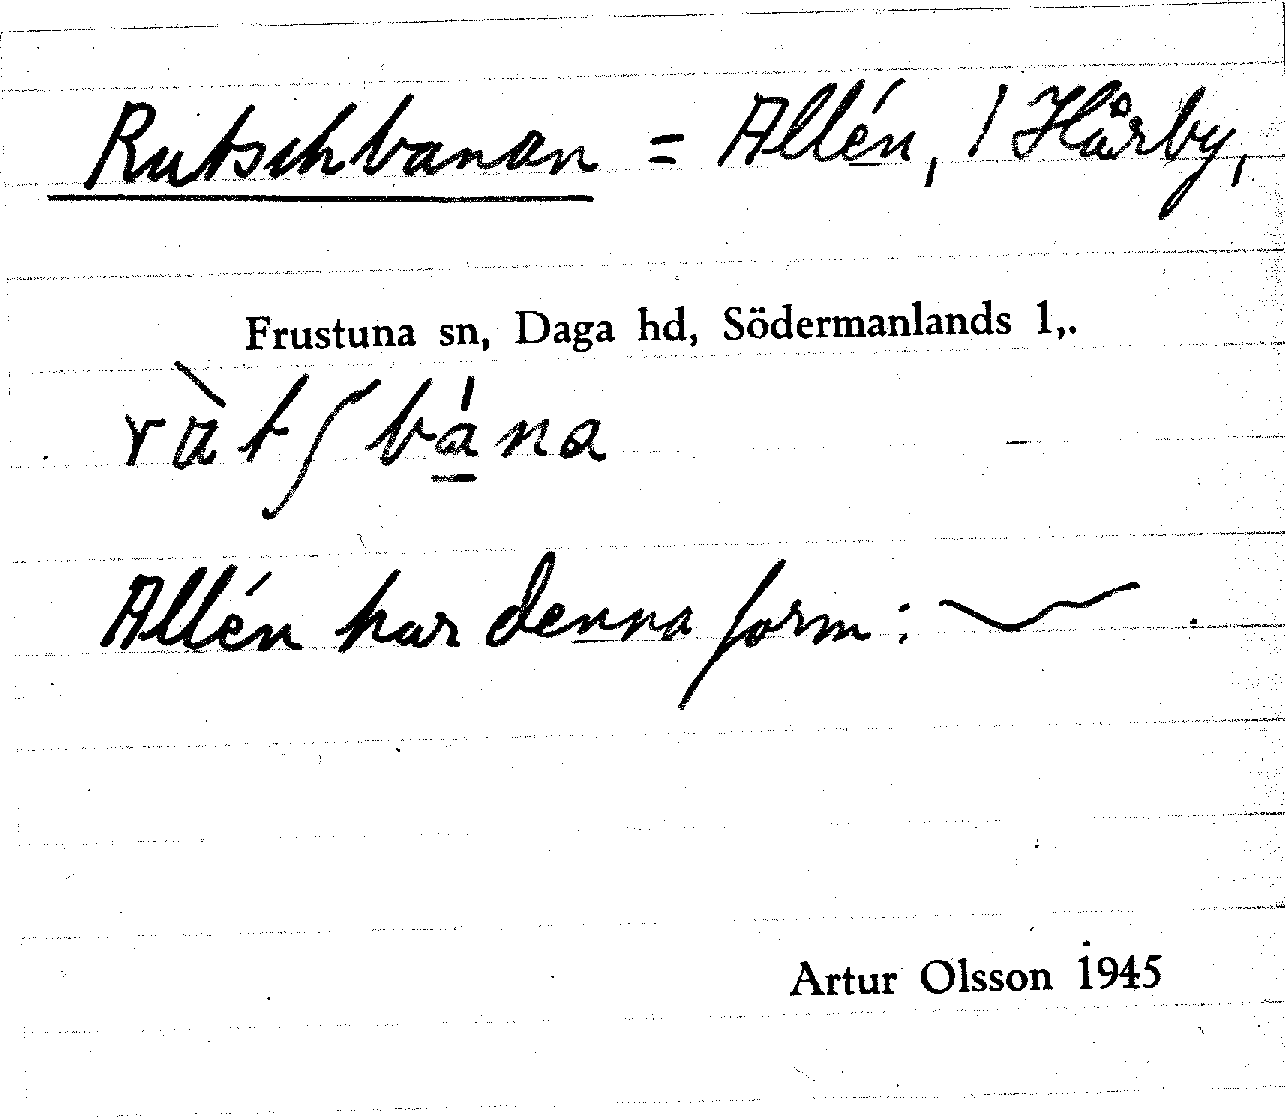 Rutschbanan = Allén, 1 Hårby,
Frustuna sn, Daga hd, Södermanlands l,.
ràtʃbána
Allén har denna form: .
Artur Olsson 1945